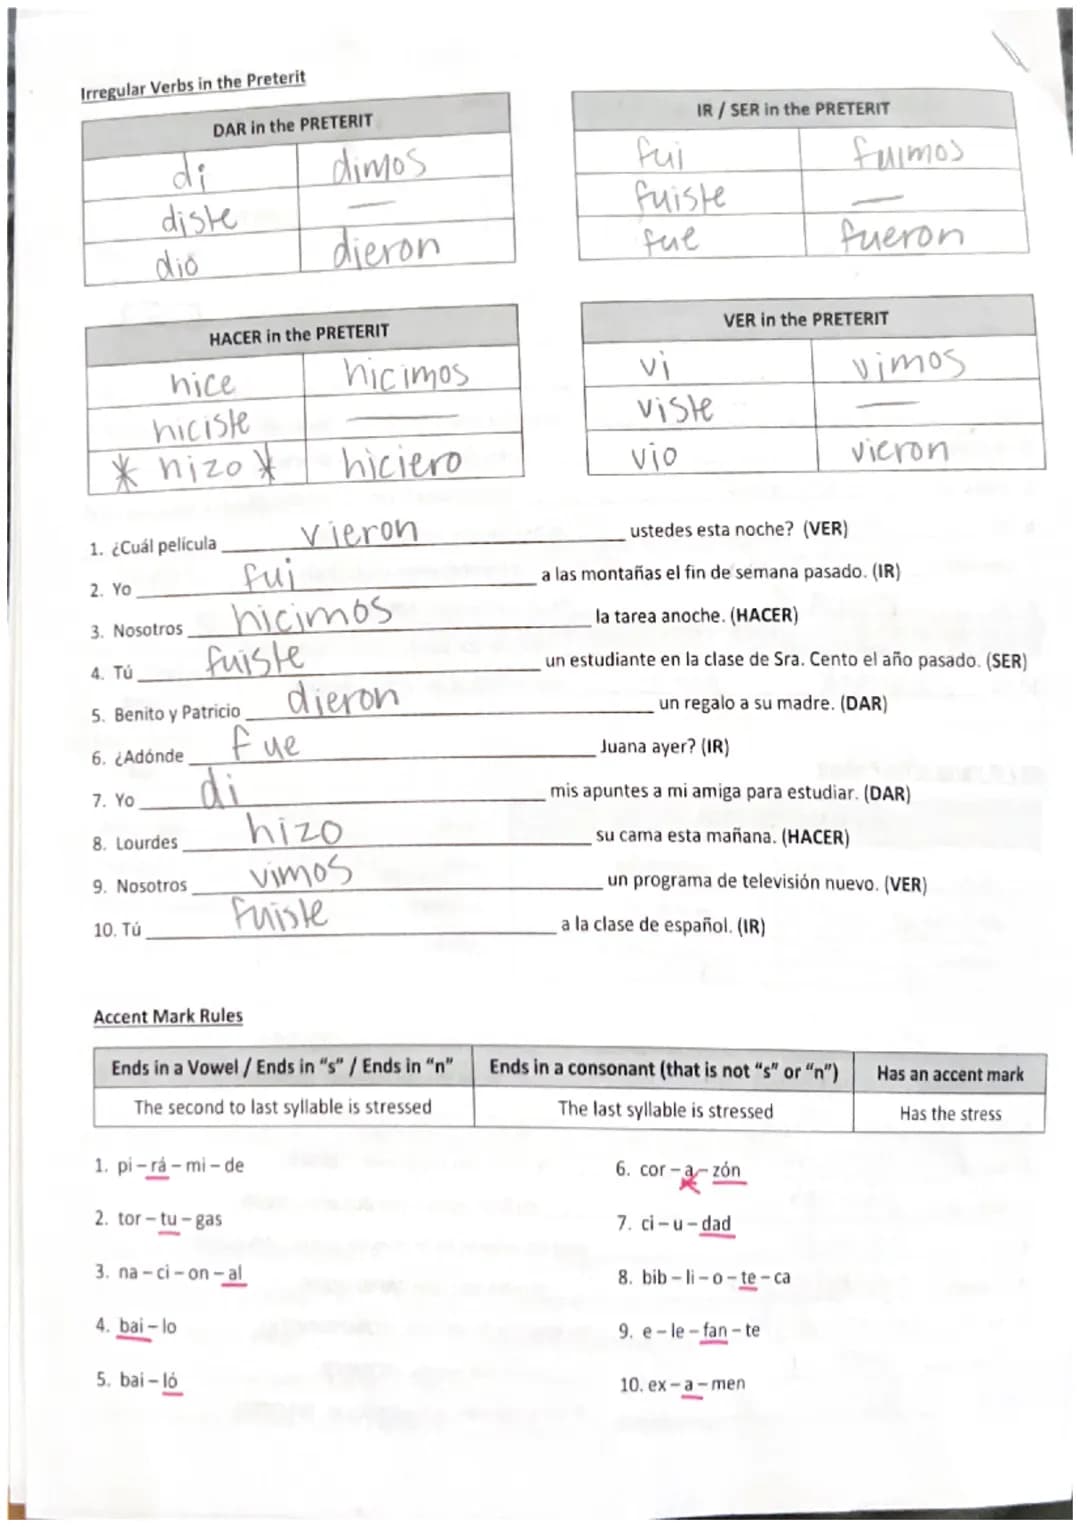 Irregular Verbs in the Preterit
DAR in the PRETERIT
di dimos
diste —
dió dieron
IR / SER in the PRETERIT
fui fuimos
fuiste —
fue fueron
HACER in the PRETERIT
hice hicimos
hiciste —
* hizo * hiciero
VER in the PRETERIT
vi vimos
viste —
vio vieron
1. ¿Cuál película vieron ustedes esta noche? (VER)
2. Yo fui a las montañas el fin de semana pasado. (IR)
3. Nosotros hicimos la tarea anoche. (HACER)
4. Tú fuiste un estudiante en la clase de Sra. Cento el año pasado. (SER)
5. Benito y Patricio dieron un regalo a su madre. (DAR)
6. ¿Adónde fue Juana ayer? (IR)
7. Yo di mis apuntes a mi amiga para estudiar. (DAR)
8. Lourdes hizo su cama esta mañana. (HACER)
9. Nosotros vimos un programa de televisión nuevo. (VER)
10. Tú fuiste a la clase de español. (IR)
Accent Mark Rules
Ends in a Vowel / Ends in "s" / Ends in "n" Ends in a consonant (that is not "s" or "n") Has an accent mark
The second to last syllable is stressed The last syllable is stressed Has the stress
1. pi – rá – mi – de
2. tor – tu – gas
3. na – ci – on – al
4. bai – lo
5. bai – ló
6. cor – a – zón
7. ci – u – dad
8. bib – li – o – te – ca
9. e – le – fan – te
10. ex – a – men